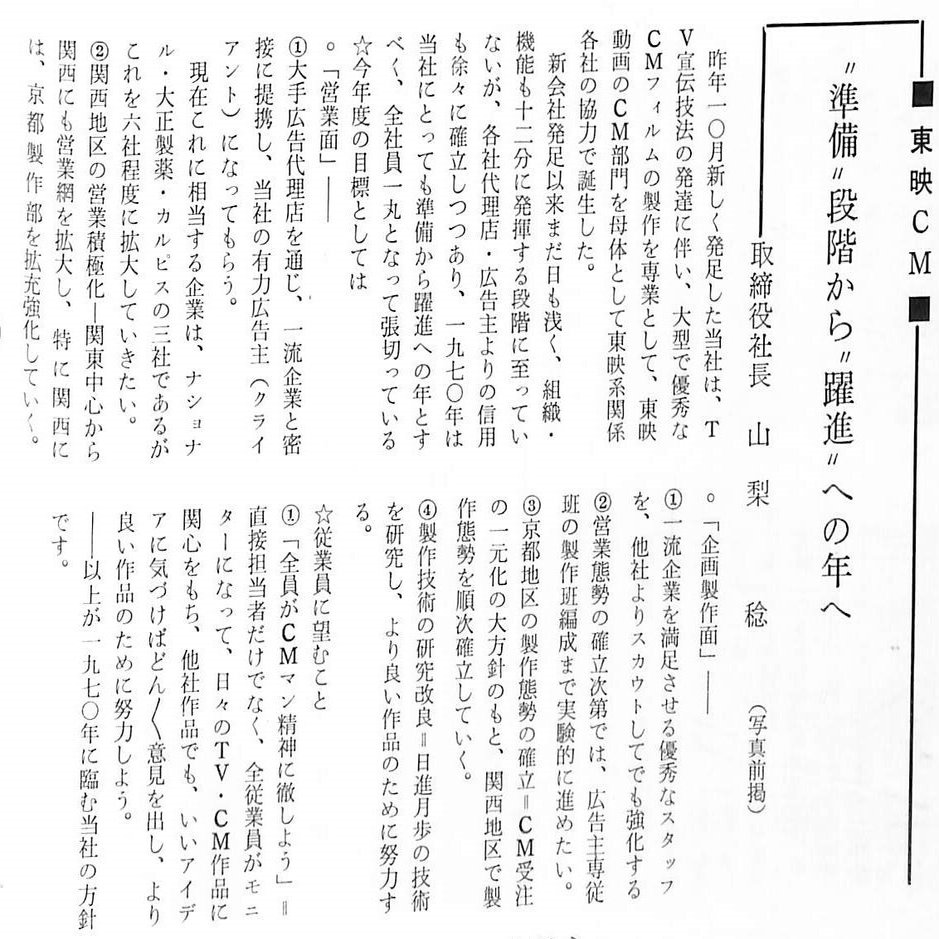 ■東映CM■
〝準備〟段階から〝躍進〟への年へ
取締役社長　山梨　稔　（写真前掲）
昨年一〇月新しく発足した当社は、T
V宣伝技法の発達に伴い、大型で優秀な
CMフィルムの製作を専業として、東映
動画のCM部門を母体として東映系関係
各社の協力で誕生した。
新会社発足以来まだ日も浅く、組織・
機能も十二分に発揮する段階に至ってい
ないが、各社代理店・広告主よりの信用
も徐々に確立しつつあり、一九七〇年は
当社にとっても準備から躍進への年とす
べく、全社員一丸となって張切っている
☆今年度の目標としては
○「営業面」――
①大手広告代理店を通じ、一流企業と密
接に提携し、当社の有力広告主（クライ
アント）になってもらう。
現在これに相当する企業は、ナショナ
ル・大正製薬・カルピスの三社であるが
これを六社程度に拡大していきたい。
②関西地区の営業積極化―関東中心から
関西にも営業網を拡大し、特に関西に
は、京都製作部を拡充強化していく。
○「企画製作面」――
①一流企業を満足させる優秀なスタッフ
を、他社よりスカウトしてでも強化する
②営業態勢の確立次第では、広告主専従
班の製作班編成まで実験的に進めたい。
③京都地区の製作態勢の確立＝CM受注
の一元化の大方針のもと、関西地区で製
作態勢を順次確立していく。
④製作技術の研究改良＝日進月歩の技術
を研究し、より良い作品のために努力す
る。
☆従業員に望むこと
①「全員がCMマン精神に徹しよう」＝
直接担当者だけでなく、全従業員がモニ
ターになって、日々のTV・CM作品に
関心をもち、他社作品でも、いいアイデ
アに気づけばどん〱意見を出し、より
良い作品のために努力しよう。
――以上が一九七〇年に臨む当社の方針
です。